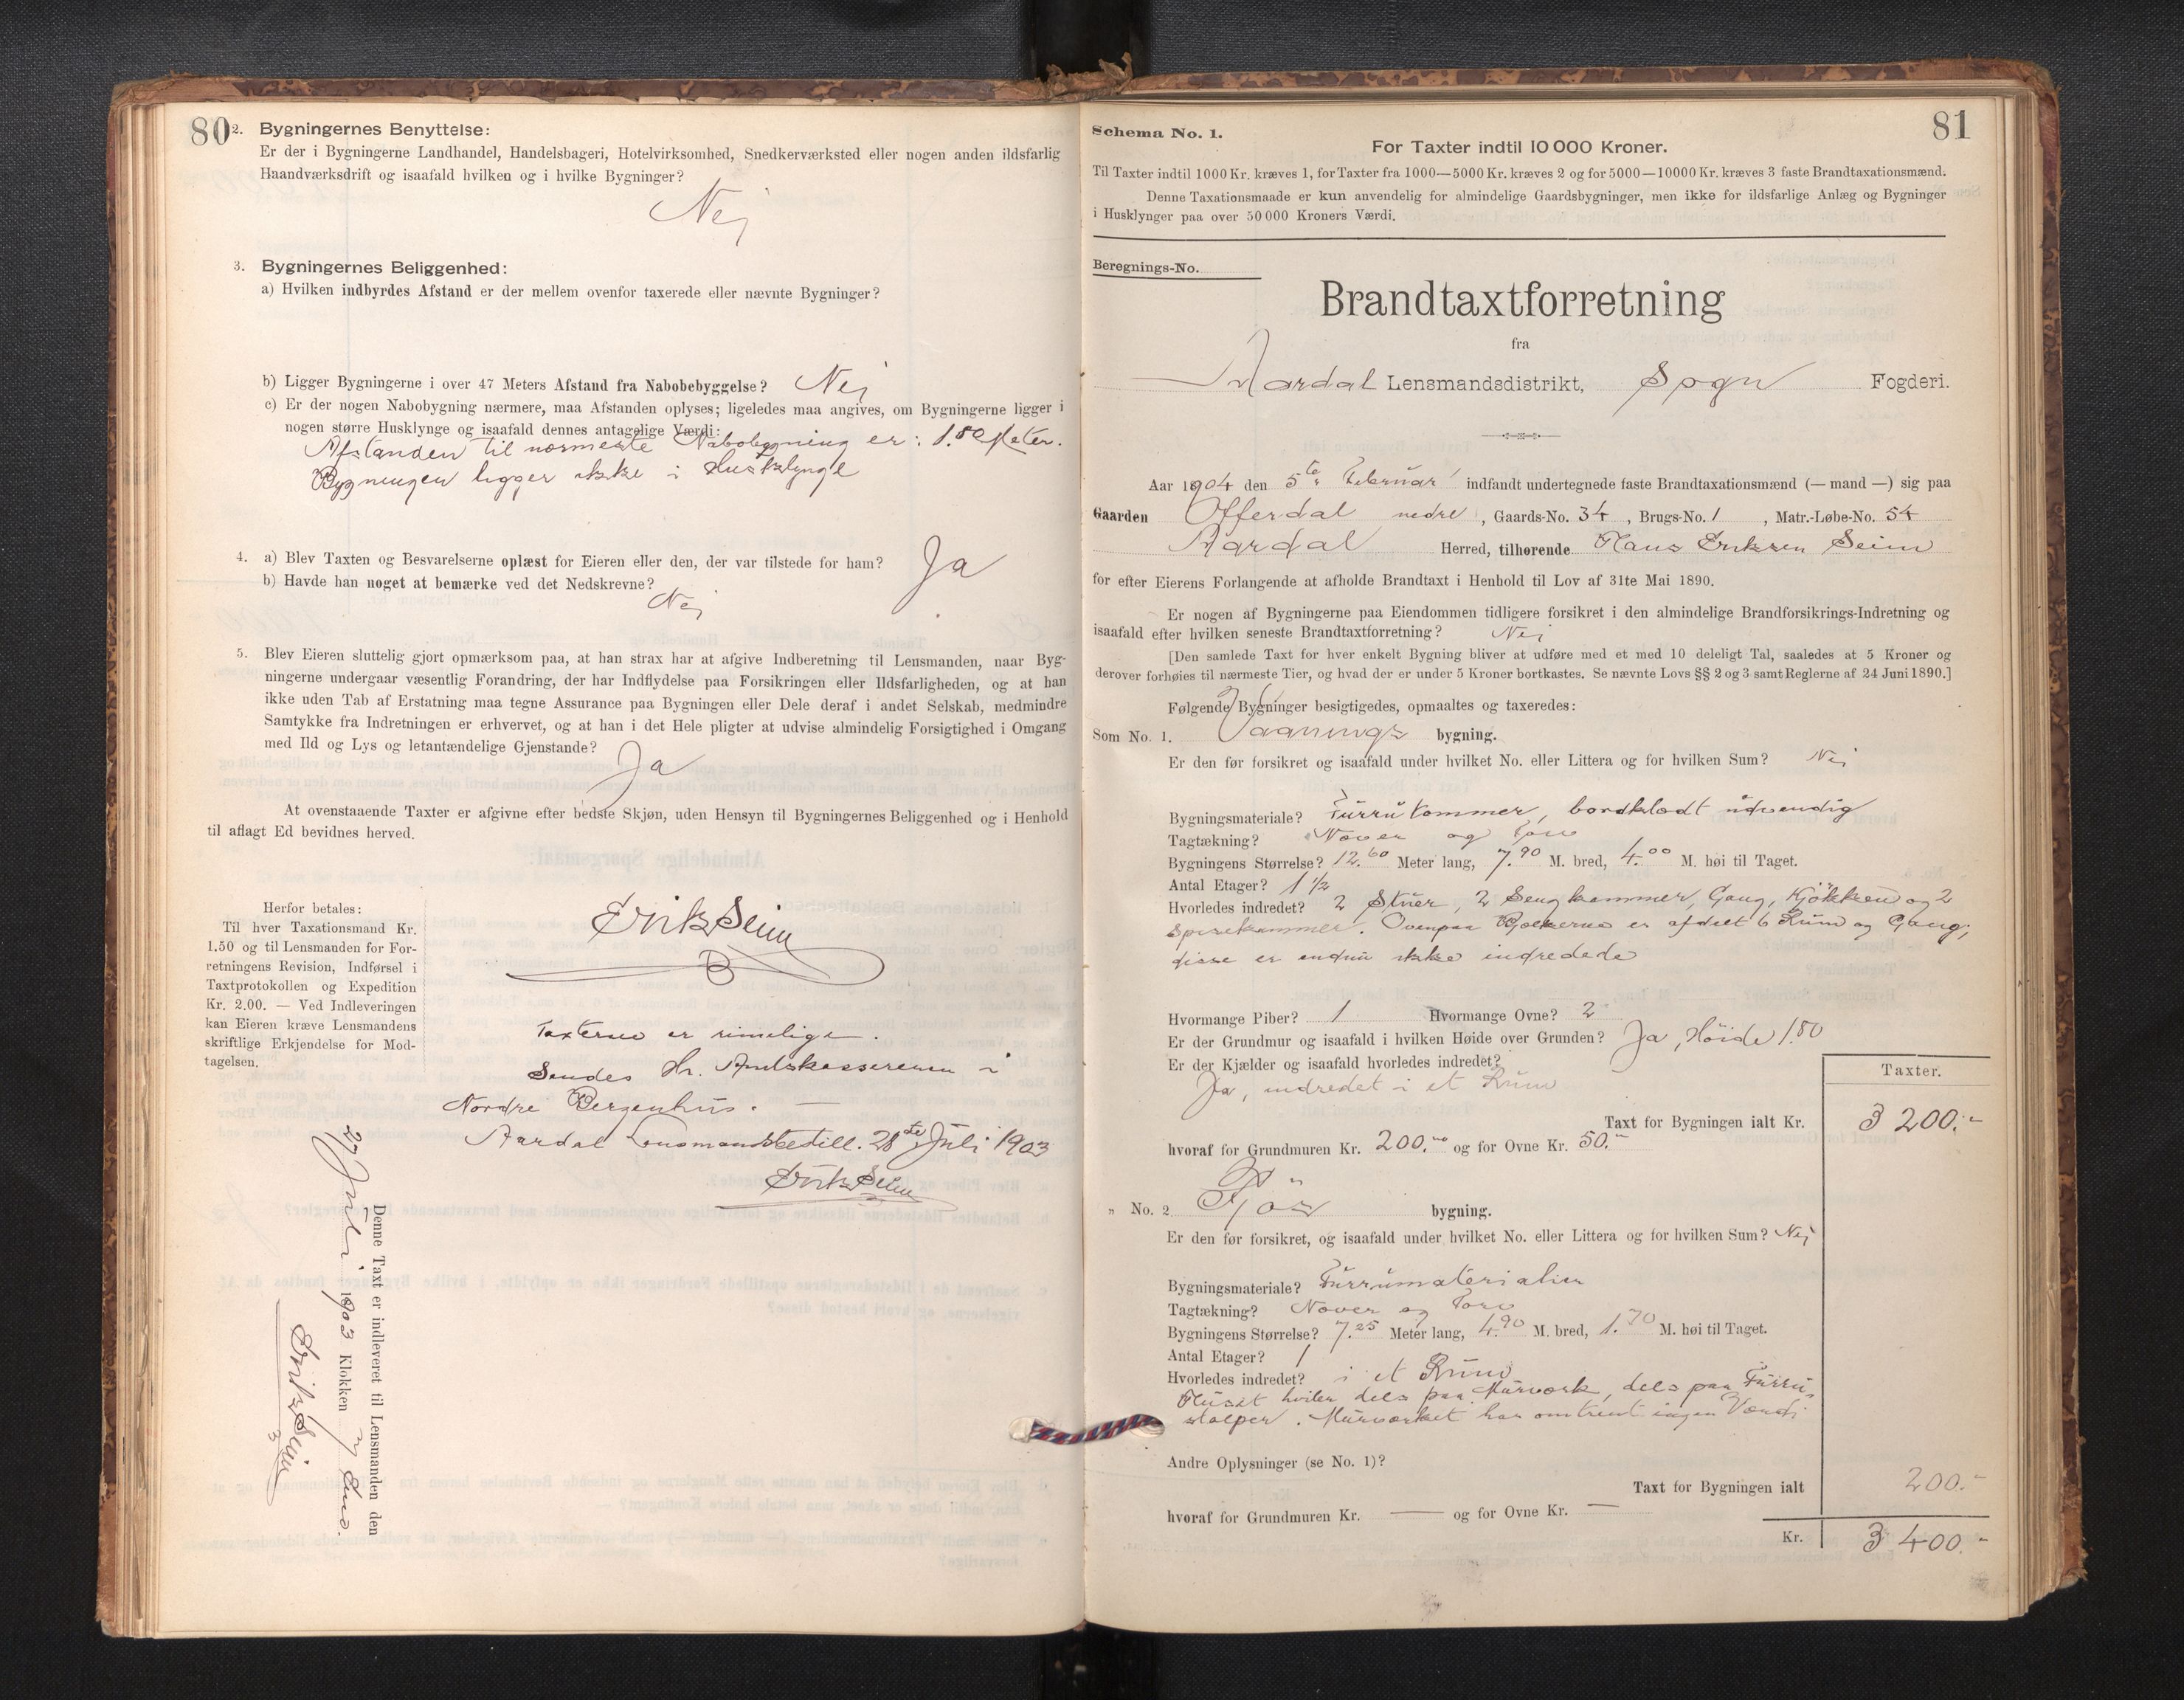 80
2. Bygningernes Benyttelse:
Er der i Bygningerne Landhandel, Handelsbageri, Hotelvirksomhed, Snedkerværksted eller nogen anden ildsfarlig
Haandværksdrift og isaafald hvilken og i hvilke Bygninger?
Nej
3. Bygningernes Beliggenhed:
a) Hvilken indbyrdes Afstand er der mellem ovenfor taxerede eller nævnte Bygninger?
b) Ligger Bygningerne i over 47 Meters Afstand fra Nabobebyggelse? Nej
c) Er der nogen Nabobygning nærmere, maa Afstanden oplyses; ligeledes maa angives, om Bygningerne ligger i
nogen større Husklynge og isaafald dennes antagelige Værdi:
Afstanden til nærmeste Nabobygning er: 1.80 Meter.
Bygningen ligger ikke i Husklynge
4. a) Blev Taxten og Besvarelserne oplæst for Eieren eller den, der var tilstede for ham? Ja
b) Havde han noget at bemærke ved det Nedskrevne?
Nej
5. Blev Eieren sluttelig gjort opmærksom paa, at han strax har at afgive Indberetning til Lensmanden, naar Byg-
ningerne undergaar væsentlig Forandring, der har Indflydelse paa Forsikringen eller Ildsfarligheden, og at han
ikke uden Tab af Erstatning maa tegne Assurance paa Bygningen eller Dele deraf i andet Selskab, medmindre
Samtykke fra Indretningen er erhvervet, og at han i det Hele pligter at udvise almindelig Forsigtighed i Omgang
med Ild og Lys og letantændelige Gjenstande? Ja
At ovenstaaende Taxter er afgivne efter bedste Skjøn, uden Hensyn til Bygningernes Beliggenhed og i Henhold
til aflagt Ed bevidnes herved.
Herfor betales:
Til hver Taxationsmand Kr.
1.50 og til Lensmanden for For-
retningens Revision, Indførsel i
Taxtprotokollen og Expedition
Kr. 2.00. — Ved Indleveringen
kan Eieren kræve Lensmandens
skriftlige Erkjendelse for Mod-
tagelsen.
Erik Seim
Taxterne er rimelige.
Sendes Hr. Amtskassereren i
Nordre Bergenhus. —
Aardal Lensmandsbestill. 28de Juli 1903
Erik Seim
Denne Taxt er indleveret til Lensmanden den
27 Juli 1903 Klokken 7 Em.
Erik Seim
81
Schema No. 1.
For Taxter indtil 10 000 Kroner.
Til Taxter indtil 1000 Kr. kræves 1, for Taxter fra 1000—5000 Kr. kræves 2 og for 5000—10000 Kr. kræves 3 faste Brandtaxationsmænd.
Denne Taxationsmaade er kun anvendelig for almindelige Gaardsbygninger, men ikke for ildsfarlige Anlæg og Bygninger
i Husklynger paa over 50 000 Kroners Værdi.
Beregnings-No.
Brandtaxtforretning
fra
Aardal Lensmandsdistrikt, Sogn Fogderi.
Aar 1904 den 5te Februar indfandt undertegnede faste Brandtaxationsmænd (— mand —) sig paa
Gaarden Offerdal nedre, Gaards-No. 34, Brugs-No. 1, Matr.-Løbe-No. 54
Aardal Herred, tilhørende Hans Eriksen Seim
for efter Eierens Forlangende at afholde Brandtaxt i Henhold til Lov af 31te Mai 1890.
Er nogen af Bygningerne paa Eiendommen tidligere forsikret i den almindelige Brandforsikrings-Indretning og
isaafald efter hvilken seneste Brandtaxtforretning? Nei
[Den samlede Taxt for hver enkelt Bygning bliver at udføre med et med 10 deleligt Tal, saaledes at 5 Kroner og
derover forhøies til nærmeste Tier, og hvad der er under 5 Kroner bortkastes. Se nævnte Lovs §§ 2 og 3 samt Reglerne af 24 Juni 1890.]
Følgende Bygninger besigtigedes, opmaaltes og taxeredes:
Som No. 1. Vaanings bygning.
Er den før forsikret og isaafald under hvilket No. eller Littera og for hvilken Sum? Nei
Bygningsmateriale? Furru tømmer, bordklædt udvendig
Tagtækning? Næver og Torv
Bygningens Størrelse? 12.60 Meter lang, 7.90 M. bred, 4.00 M. høi til Taget.
Antal Etager? 1 1/2
Hvorledes indredet? 2 Stuer, 2 Sengkammer, Gang, Kjøkken og 2
spisekammer. Ovenpaa Bjelkerne er afdelt 6 Rum og Gang,
disse er endnu ikke indredede
Hvormange Piber? 1 Hvormange Ovne? 2
Er der Grundmur og isaafald i hvilken Høide over Grunden? Ja, Høide 1.80
Er der Kjælder og isaafald hvorledes indredet?
Ja, indredet i et Rum
Taxter.
Taxt for Bygningen ialt Kr. 3 200.-
hvoraf for Grundmuren Kr. 200.- og for Ovne Kr. 50.-
" No. 2 Fjøs bygning.
Er den før forsikret, og isaafald under hvilket No. eller Littera og for hvilken Sum? Nej
Bygningsmateriale? Furrumaterialier
Tagtækning? Næver og Torv
Bygningens Størrelse? 7.25 Meter lang, 4.90 M. bred, 1.70 M. høi til Taget.
Antal Etager? 1
Hvorledes indredet? i et Rum
Huset hviler dels paa Murværk, dels paa Furru-
stolper. Murværket har omtrent ingen Værdi
Andre Oplysninger (se No. 1)?
Taxt for Bygningen ialt 200.-
hvoraf for Grundmuren Kr. — og for Ovne Kr. —
Kr. 3 400.-